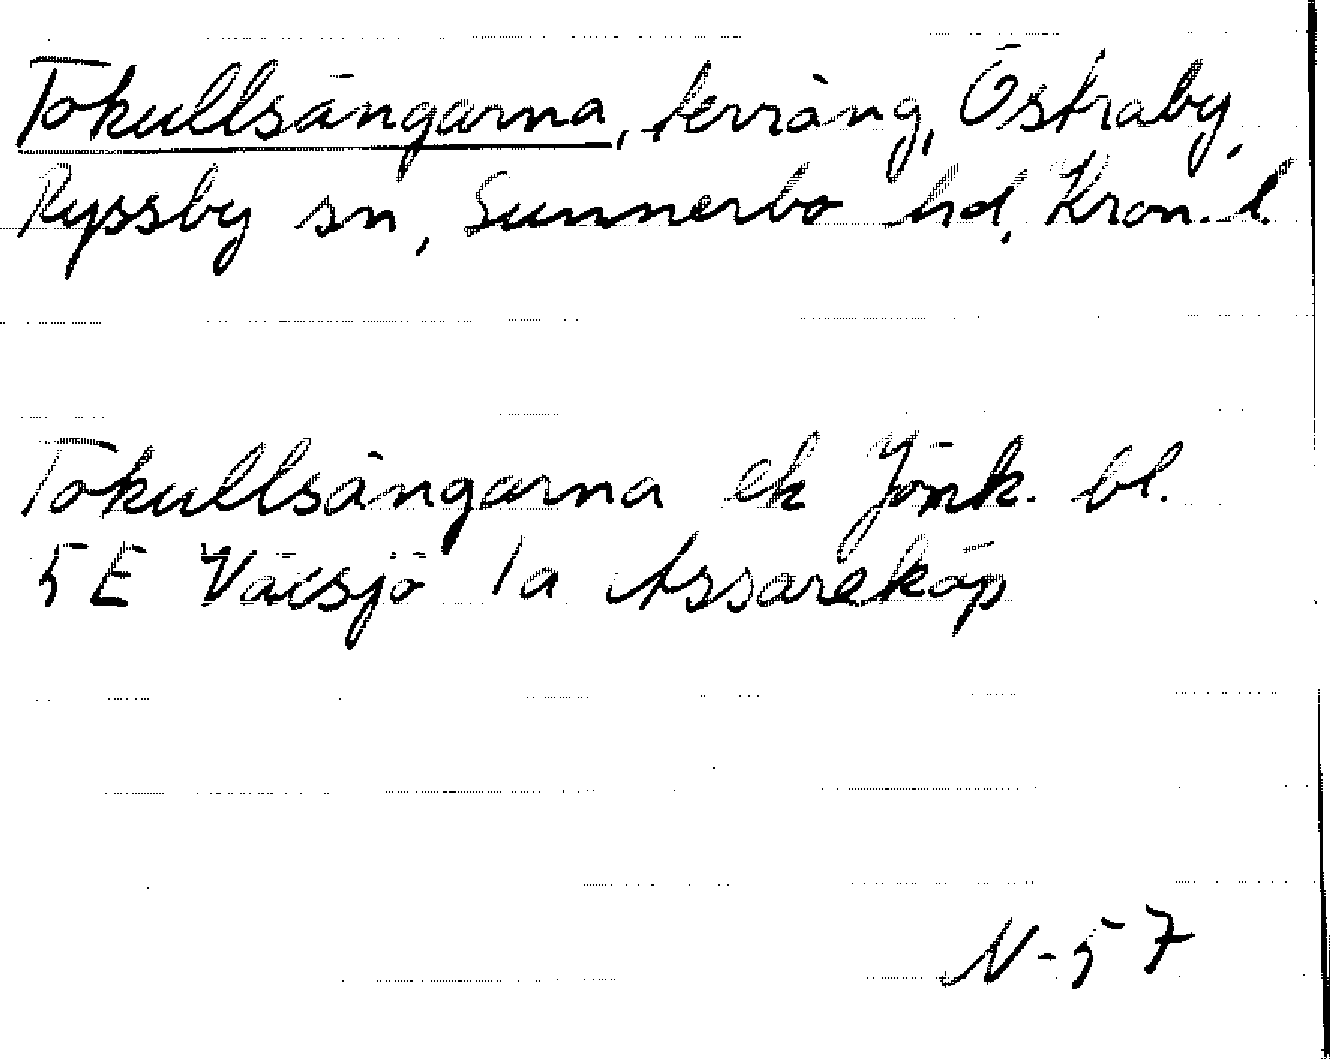 Tokullsängarna, terräng, Östraby,
Ryssby sn, Sunnerbo hd, Kron. l.
Tokullsängarna ek Jönk. bl.
5 E Växsjö 1a Assareköp
N-57